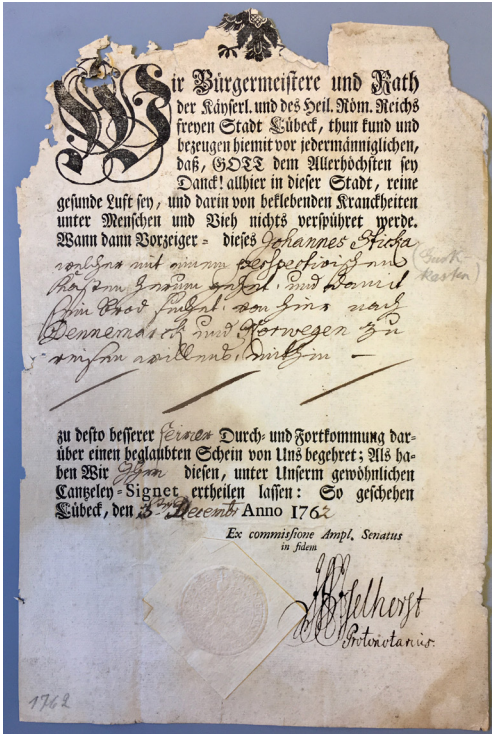 Wir Bürgermeistere und Rath
der Käyserl. und des Heil. Röm. Reichs
freyen Stadt Lübeck, thun kund und
bezeugen hiemit vor jedermänniglichen,
daß, GOTT dem Allerhöchsten sey
Danck! allhier in dieser Stadt, reine
gesunde Luft sey, und darin von beklebenden Kranckheiten
unter Menschen und Vieh nichts verspühret werde.
Wann dann Vorzeiger - dieses Johannes Sticka
(Guck-
kasten)
welcher mit einem perspectivischen
Kasten herum gehet, und damit
sein Brod suchet, von hier nach
Dennemarck und Norwegen zu
reisen willens, mithin —
zu desto besserer ferner Durch- und Fortkommung dar-
über einen beglaubten Schein von Uns begehret; Als ha-
ben Wir Ihm diesen, unter Unserm gewöhnlichen
Cantzeley-Signet ertheilen lassen: So geschehen
Lübeck, den Decembr Anno 1762
Ex commissione Ampl. Senatus
in fidem
Protonotarius.
1762